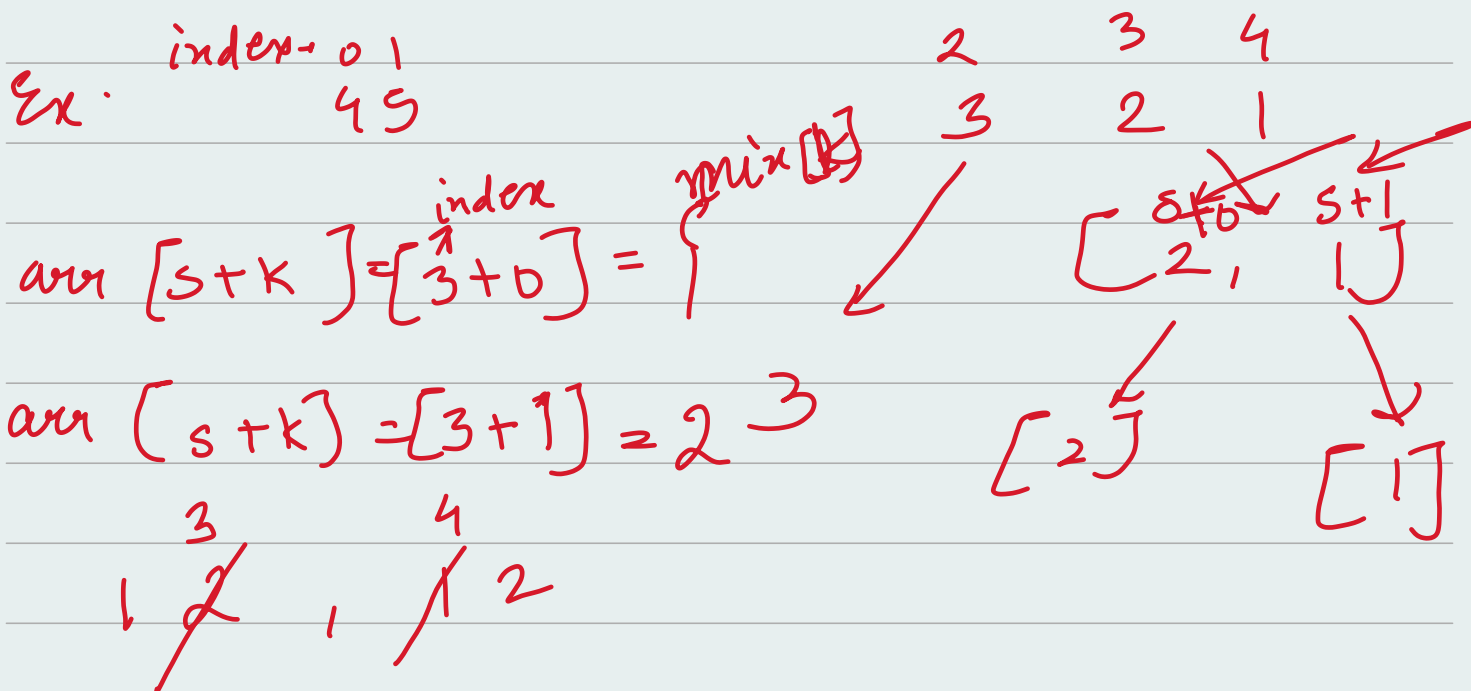 index→ 0 1 2 3 4
Ex. 4 5 3 2 1
index mix[k]
s+0 s+1
arr [s+k] = [3+0] = { [2, 1]
arr [s+k] = [3+1] = 2 3 [2] [1]
3 4
1 2 , 1 2